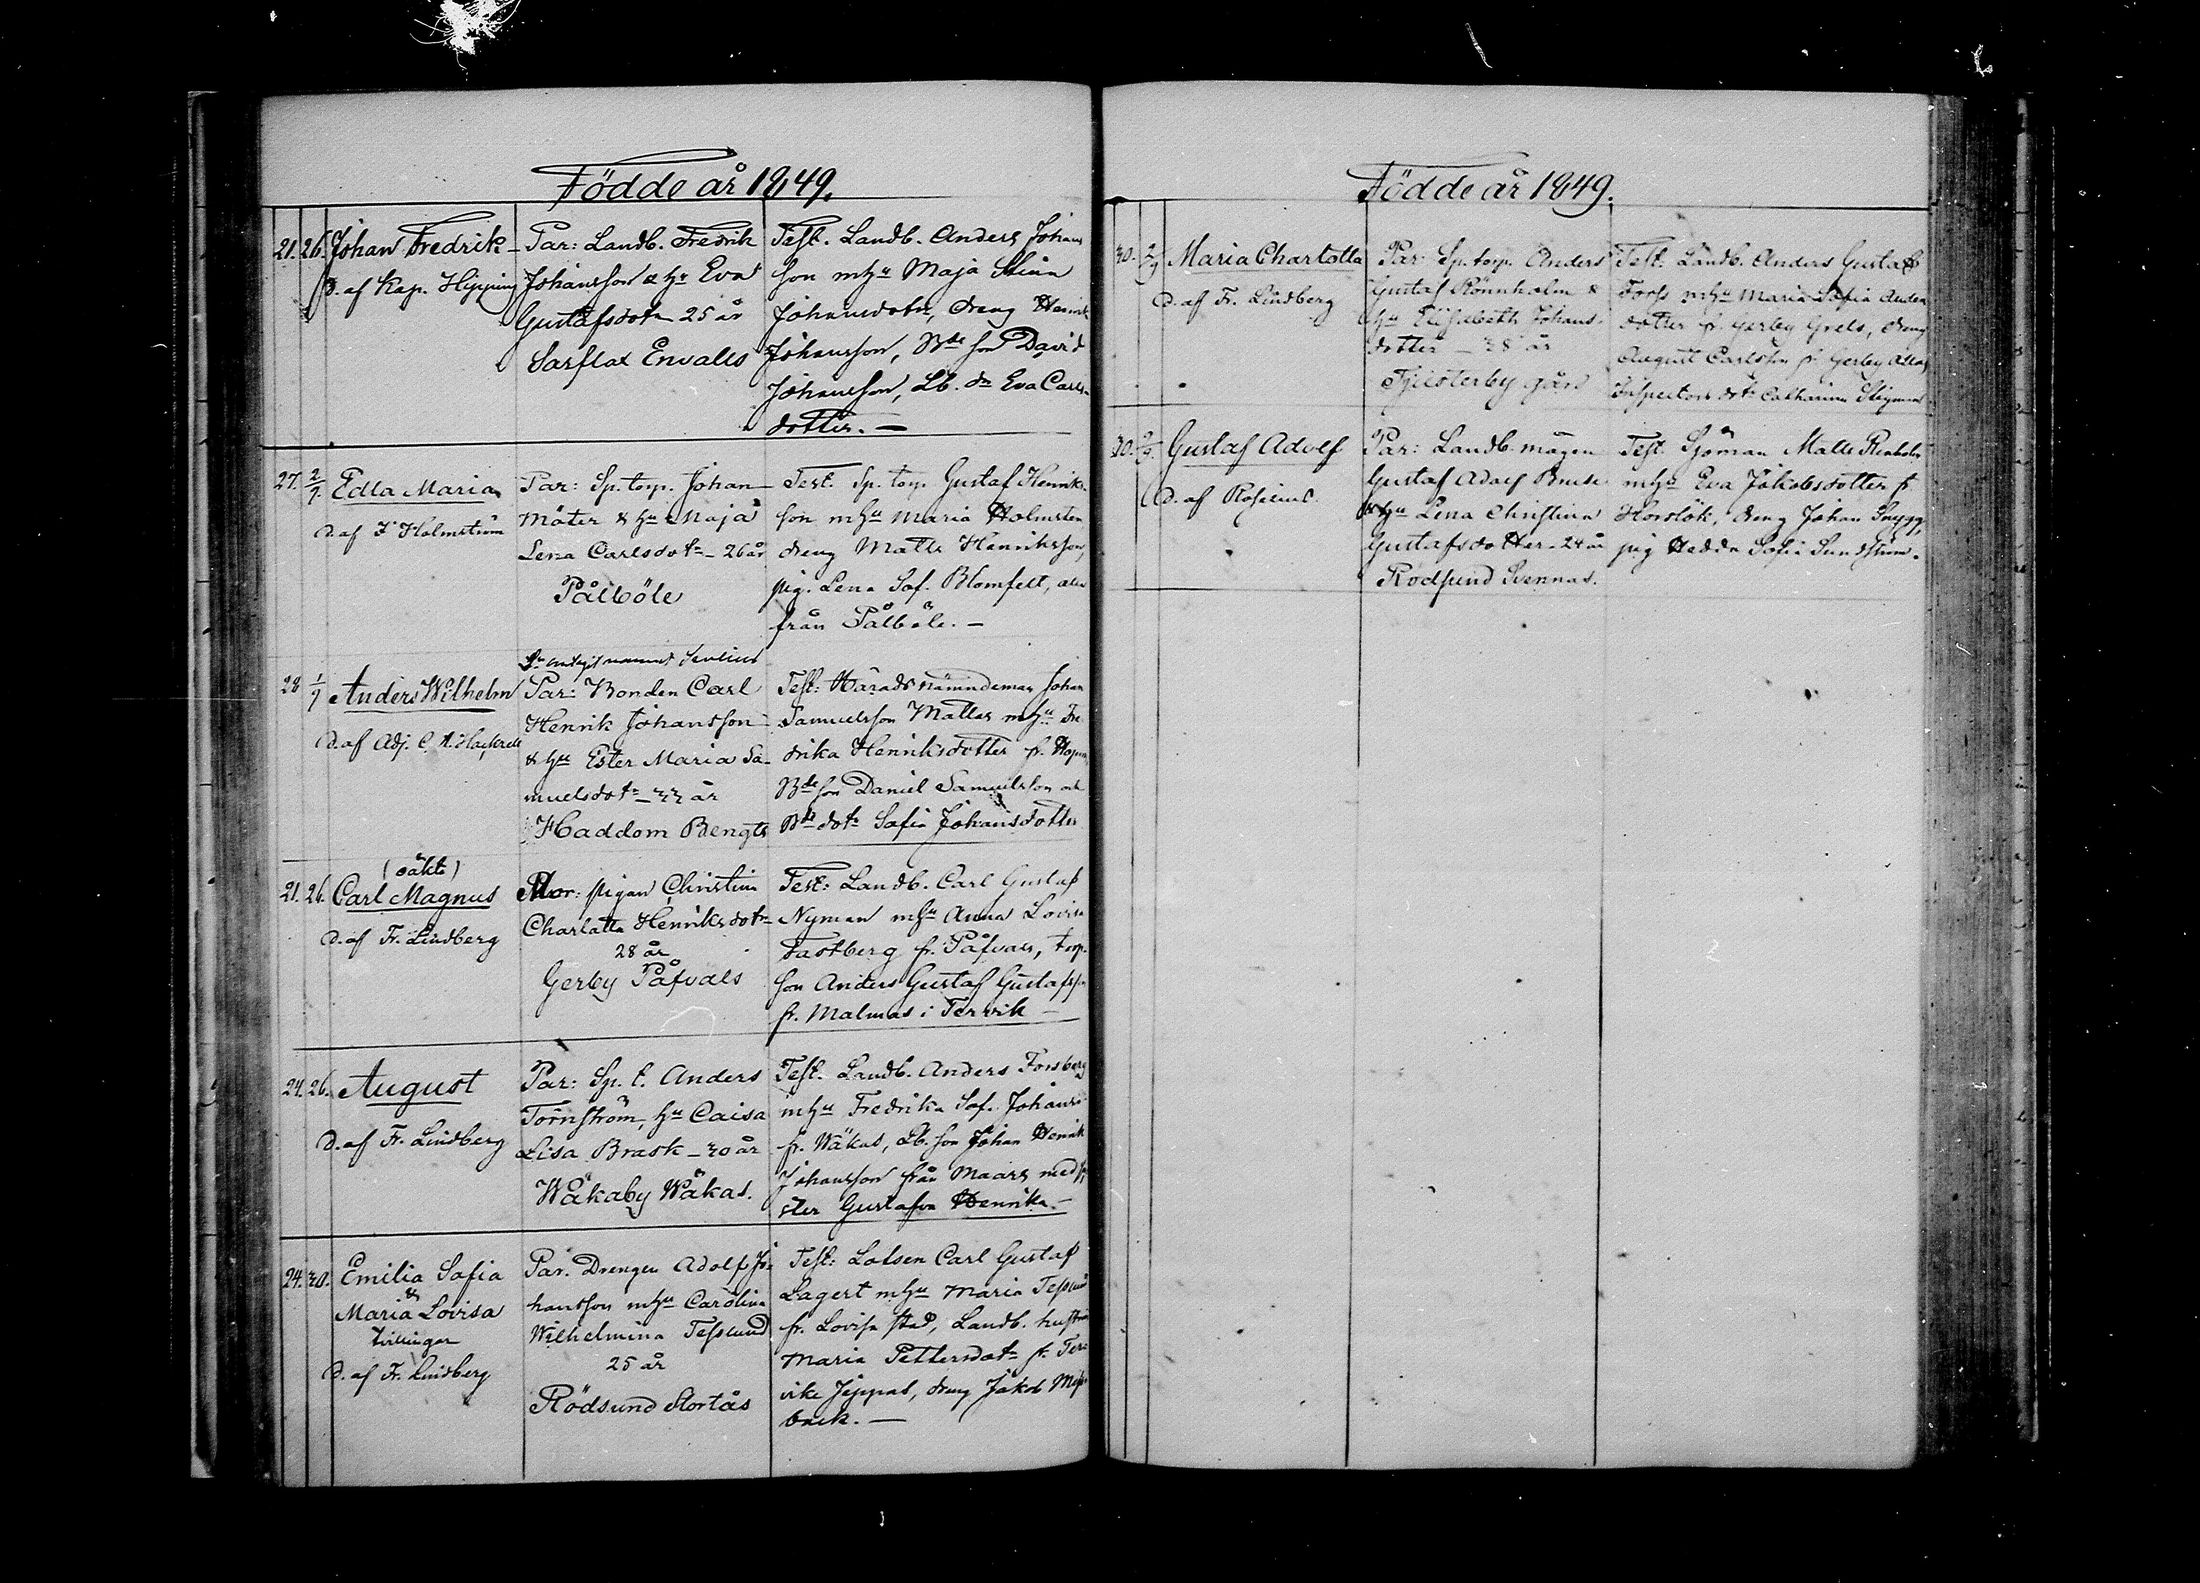 Födde år 1849.
21. 26. Johan Fredrik Par: Landb. Fredrik Test. Landb. Anders Johans
d. af Kap. Hipping Johansson & hu Eva son mhu Maja Stina
Gustafsdotr 25 år Johansdotr, dreng Henrik
Sarflax Envalls Johansson, Bde son David
Johansson, Lb. dr Eva Carls-
dotter. —
27. 2/7 Edla Maria Par: Sp. torp. Johan Test. Sp. torp. Gustaf Henriks-
d. af F Holmström Mäter & hu Maja son mhu Maria Holmsten
Lena Carlsdotr - 26 år dreng Matts Henriksson,
Pålböle pig. Lena Sof. Blomfelt, alla
från Pålböle. —
antagit namnet
28 1/7 Anders Wilhelm Par: Bonden Carl Test: Häradsnämndeman Johan
d. af Adj. C. Henrik Johansson Samuelsson Mattas mhu Fre
& hu Ester Maria Sa- drika Henriksdotter fr.
muelsdotr - 33 år Bde son Daniel Samuelsson och
Haddom Bengts Bde dotr Sofia Johansdotter
(oäkta)
21. 26. Carl Magnus Mor: pigan Christina Test: Landb. Carl Gustaf
d. af Fr. Lindberg Charlotta Henriksdotr Nyman mhu Anna Lovisa
28 år Fastberg fr. Påfvals, torp.
Gerby Påfvals son Anders Gustaf Gustafsson
fr. Malmas i Tervik —
24. 26. August Par: Sp. t. Anders Test. Landb. Anders Forsberg
d. af Fr. Lindberg Törnström, hu Caisa mhu Fredrika Sof. Johans
Lisa Brask - 30 år fr. Wåkas, Lb. son Johan Henrik
Wåkaby Wåkas. Johansson från Maars med sy
ster Gustafva Henrika. —
24. 30. Emilia Sofia Par. Drengen Adolf Jo- Test: Lotsen Carl Gustaf
& hansson mhu Carolina Lagert mhu Maria Tesslund
Maria Lovisa Wilhelmina Tesslund fr. Lovisa stad, Landb. hustru
tvillingar 25 år Maria Pettersdotr fr. Ter
d. af Fr. Lindberg Rödsund Stortås vik Jeppas, dreng Jakob
back. —
Födde år 1849.
30. 2/7 Maria Charlotta Par: Sp. torp. Anders Test. Landb. Anders Gustaf
d. af Fr. Lindberg Gustaf Rönnholm & Forss mhu Maria Sofia Anders
hu Elisabeth Johans- dotter fr. Gerby Grels, dreng
dotter - 38 år August Carlsson fr. Gerby
Tjusterby gård Inspectors dotr Catharina
30. 2/7. Gustaf Adolf Par: Landb. mågen Test. Sjöman Matts
d. af Rosenius Gustaf Adolf mhu Eva Jakobsdotter fr.
& hu Lena Christina Horslök, dreng Johan Snygg,
Gustafsdotter - 24 år pig Hedda Sofia Sundström.
Rödsund Svennas.